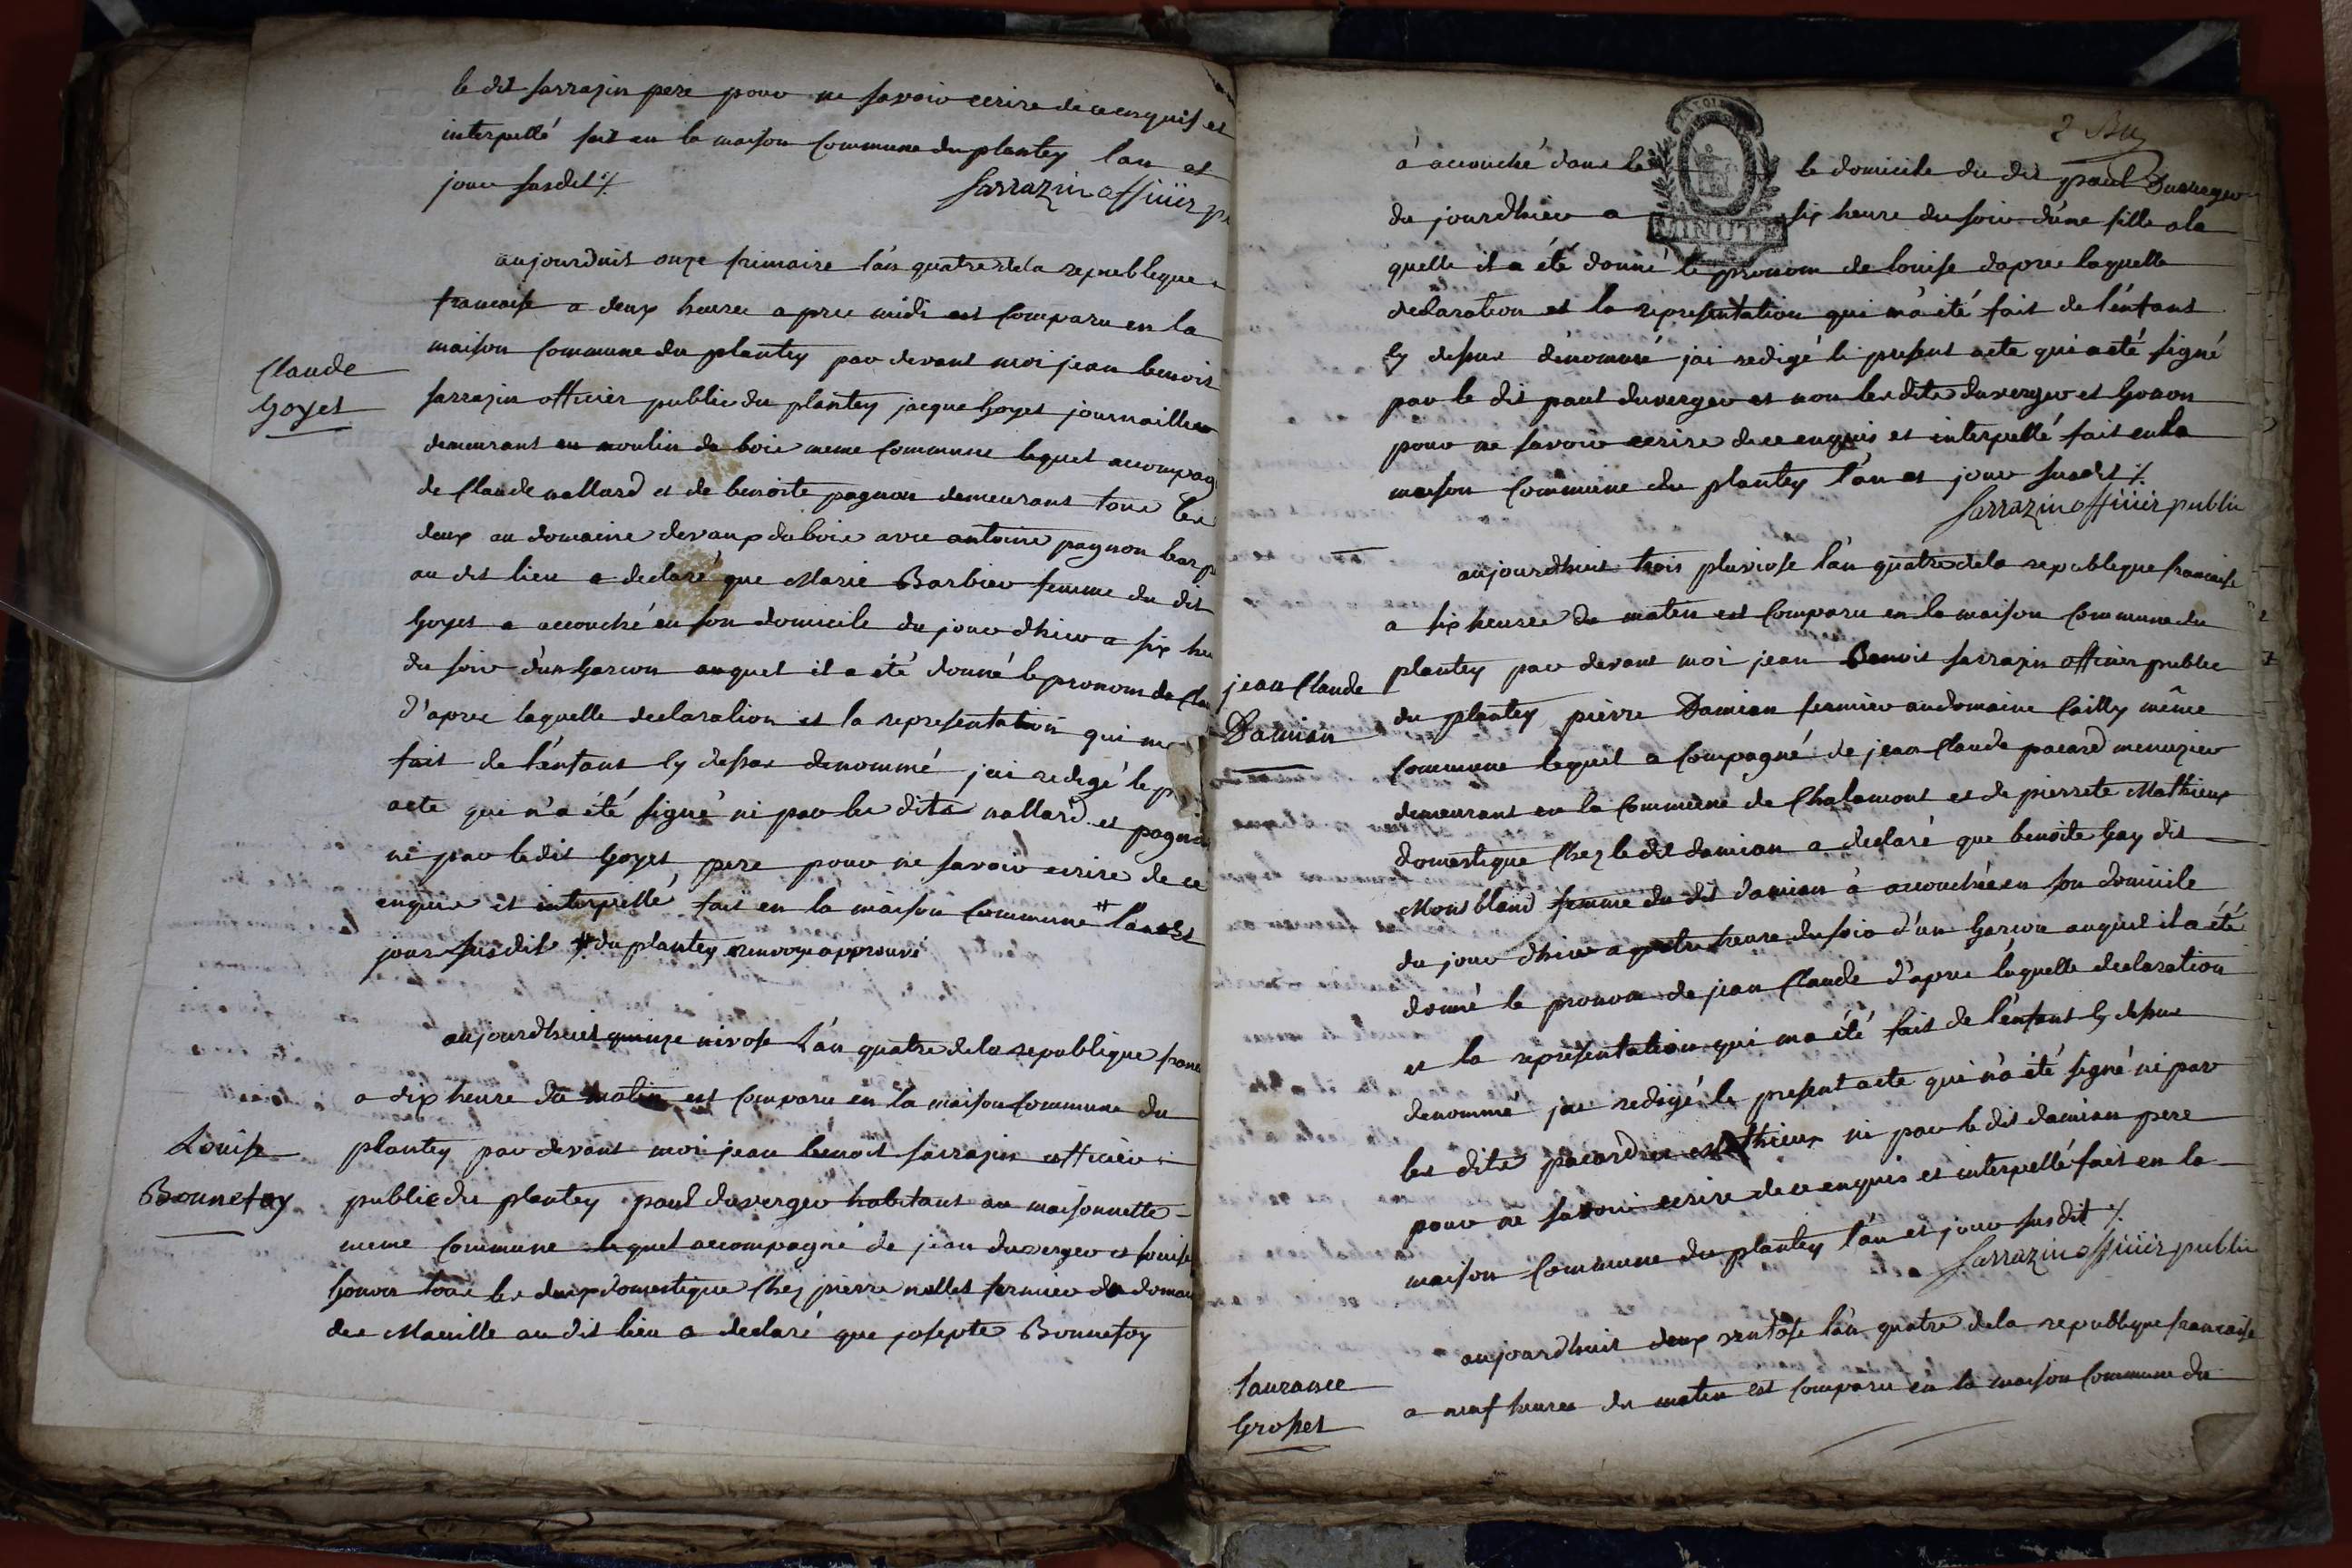 le dit sarrazin pere pour ne savoir ecrire de ce enquis et
interpellé fait en la maison commune du plantey lan et
jour susdit ./.
sarrazin officier p
aujourduit onze frimaire l'an quatre de la republeque
francaise a deux heures apres midi est comparu en la
maison commune du plantey par devant moi jean benoit
Claude
Goyet
sarrazin officier public du plantey jacque Goyet journaillier
demeurant au moulin du bois meme commune lequel accompag
de Claude nallard et de benoite pagnon demeurant tous les
deux au domaine devaux du bois avec antoine pagnon
au dit lieu a declaré que Marie Barbier femme du dit
Goyet a accouché en son domicile du jour dhier a six heu
du soir d'un garcon auquel il a été donné le pronom de Clau
d'apres laquelle declaration et la representation qui m
fait de l'enfant cy dessus denommé j'ai redigé le p
acte qui n'a été signé ni par les dits nallard et pagnon
ni par le dit Goyet pere pour ne savoir ecrire de ce
enquis et interpellé fait en la maison commune # l'an et
jour susdit # du plantey renvoye approuvé
aujourdhuit quinze nivose L'an quatre de la republique franc
a dix heure du matin est comparu en la maison commune du
Louise
Bonnefoy
plantey par devant moi jean benoit sarrazin officier
public du plantey paul duverger habitant au maisonnette
meme commune lequel accompagné de jean duverger et louise
Gonon tous les deux domestique chez pierre nallet fermier du domai
des Manille au dit lieu a declaré que josepte Bonnefoy
2 Bu
à accouché dans le le domicile du dit paul Duverger
du jourdhier a six heure du soir d'une fille a la
MINUTE
quelle il a été donné le pronom de louise d'apres laquelle
declaration et la representation qui m'a été fait de l'enfant
cy dessus dénommé j'ai redigé le present acte qui a été signé
par le dit paul duverger et non les dits duverger et Gonon
pour ne savoir ecrire de ce enquis et interpellé fait en la
maison commune du plantey l'an et jour susdit ./.
sarrazin officier public
aujourdhuit trois pluviose l'an quatre de la republeque francaise
a six heures du matin est comparu en la maison commune du
jean Claude
Damian
plantey par devant moi jean Benoit sarrazin officier public
du plantey pierre Damian fermier au domaine Cailly même
commune lequel a compagné de jean Claude pacard menuzier
demeurant en la commune de Chalamont et de pierrete Mathieux
domestique chez le dit damian a declaré que benoite Gay dit
Mont bland femme du dit damian à accouchée en son domicile
du jour dhier a quatre heure du soir d'un garcon auquel il a été
donné le pronom de jean Claude d'apres laquelle declaration
et la representation qui ma été fait de l'enfant cy dessus
denommé jai redigé le present acte qui n'a été signé ni par
les dits pacard et Mathieux ni par le dit damian pere
pour ne savoir ecrire de ce enquis et interpellé fait en la
maison commune du plantey l'an et jour susdit ./.
sarrazin officier public
aujourdhuit deux ventose l'an quatre de la republique francaise
Laurance
Grosset
a neuf heures du matin est comparu en la maison commune du